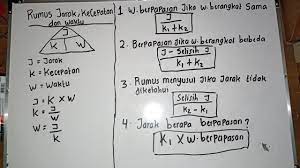 Rumus Jarak, Kecepatan
dan waktu
J
K W
J = Jarak
K = Kecepatan
W = Waktu
J = K x W
K = J
W
W = J
K
1. W. berpapasan Jika w. berangkat Sama
J
K1 + K2
2. Berpapasan Jika W berangkat berbeda
J - Selisih J
K1 + K2
3. Rumus menyusul Jika Jarak tidak
diketahui
Selisih J
K2 - K1
4. Jarak berapa berpapasan?
K1 x W. berpapasan